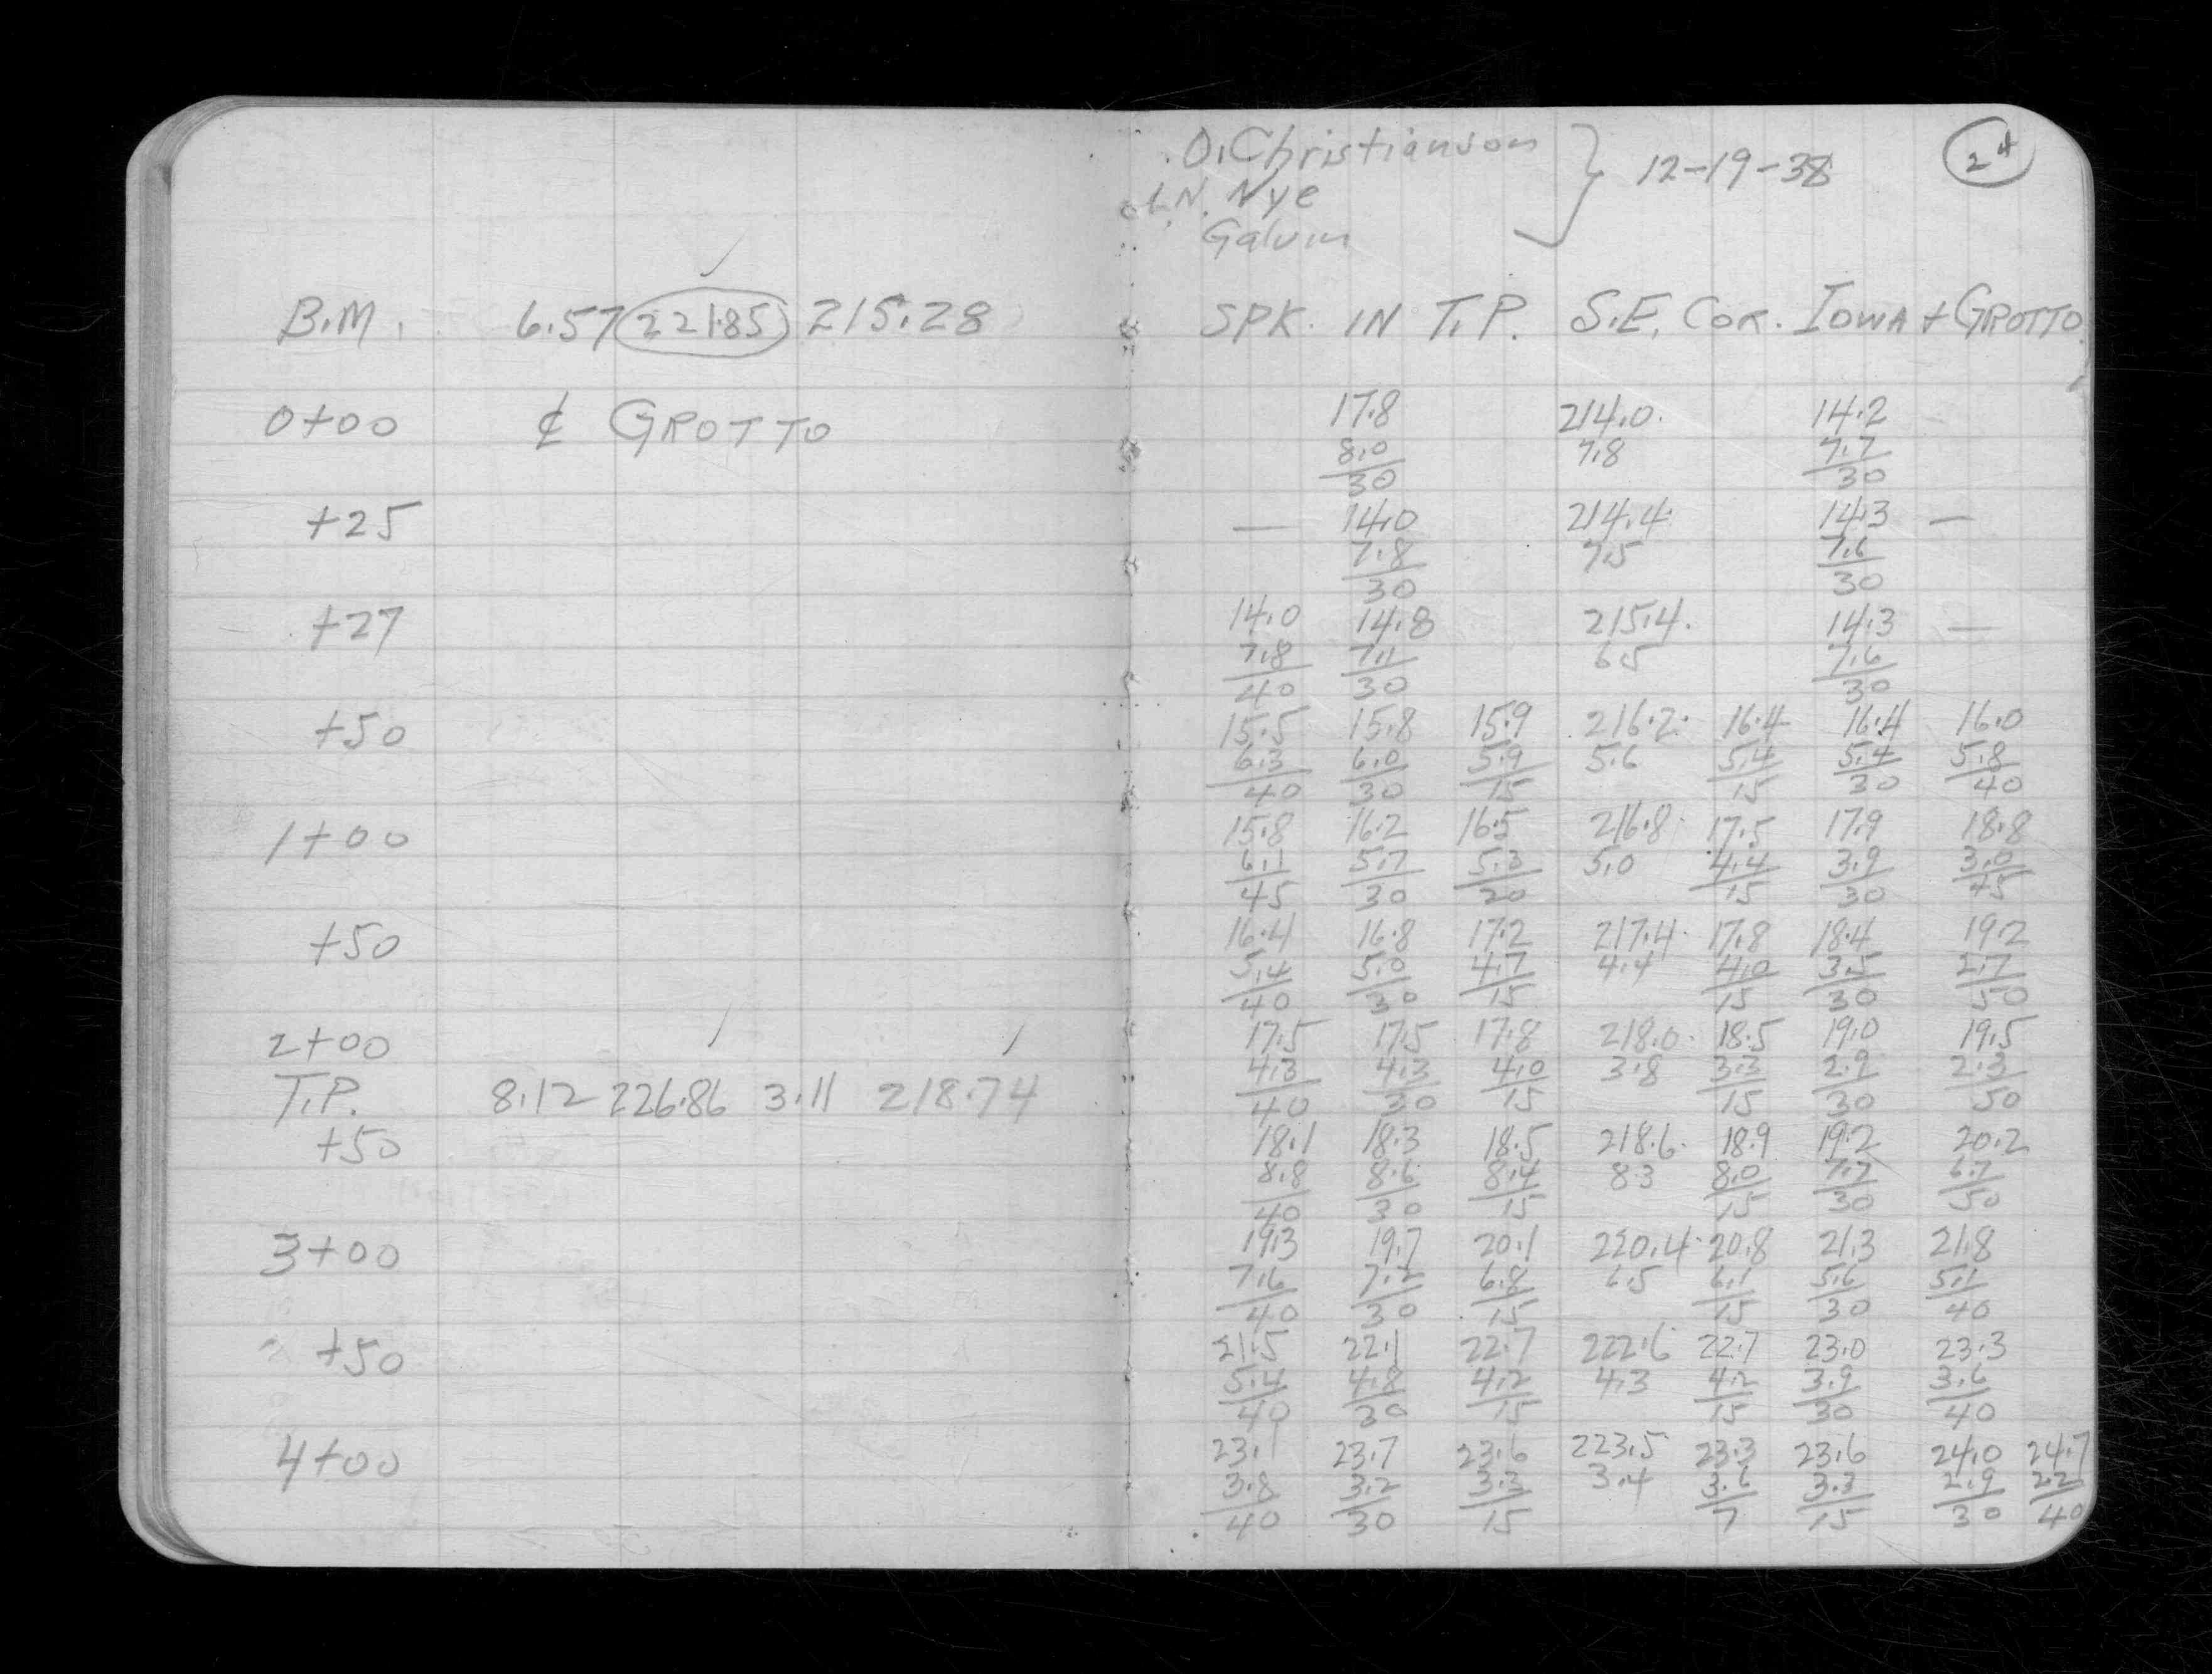 O. Christianson
L.N. Nye 12-19-38 24
Galvin
B.M. 6.57 221.85 215.28 SPK. IN T.P. S.E. COR. IOWA + GROTTO.
0+00 ₵ GROTTO 17.8 214.0 14.2
8.0 7.8 7.7
30 30
+25 — 14.0 214.4 14.3 —
7.8 7.5 7.6
30 30
+27 14.0 14.8 215.4 14.3 —
7.8 7.1 6.5 7.6
40 30 30
+50 15.5 15.8 15.9 216.2 16.4 16.4 16.0
6.3 6.0 5.9 5.6 5.4 5.4 5.8
40 30 15 15 30 40
1+00 15.8 16.2 16.5 216.8 17.5 17.9 18.8
6.1 5.7 5.3 5.0 4.4 3.9 3.0
45 30 20 15 30 45
+50 16.4 16.8 17.2 217.4 17.8 18.4 19.2
5.4 5.0 4.7 4.4 4.0 3.5 2.7
40 30 15 15 30 50
2+00 17.5 17.5 17.8 218.0 18.5 19.0 19.5
T.P. 8.12 226.86 3.11 218.74 4.3 4.3 4.0 3.8 3.3 2.9 2.3
40 30 15 15 30 50
+50 18.1 18.3 18.5 218.6 18.9 19.2 20.2
8.8 8.6 8.4 8.3 8.0 7.7 6.7
40 30 15 15 30 50
3+00 19.3 19.7 20.1 220.4 20.8 21.3 21.8
7.6 7.2 6.8 6.5 6.1 5.6 5.1
40 30 15 15 30 40
+50 21.5 22.1 22.7 222.6 22.7 23.0 23.3
5.4 4.8 4.2 4.3 4.2 3.9 3.6
40 30 15 15 30 40
4+00 23.1 23.7 23.6 223.5 23.3 23.6 24.0 24.7
3.8 3.2 3.3 3.4 3.6 3.3 2.9 2.2
40 30 15 7 15 30 40